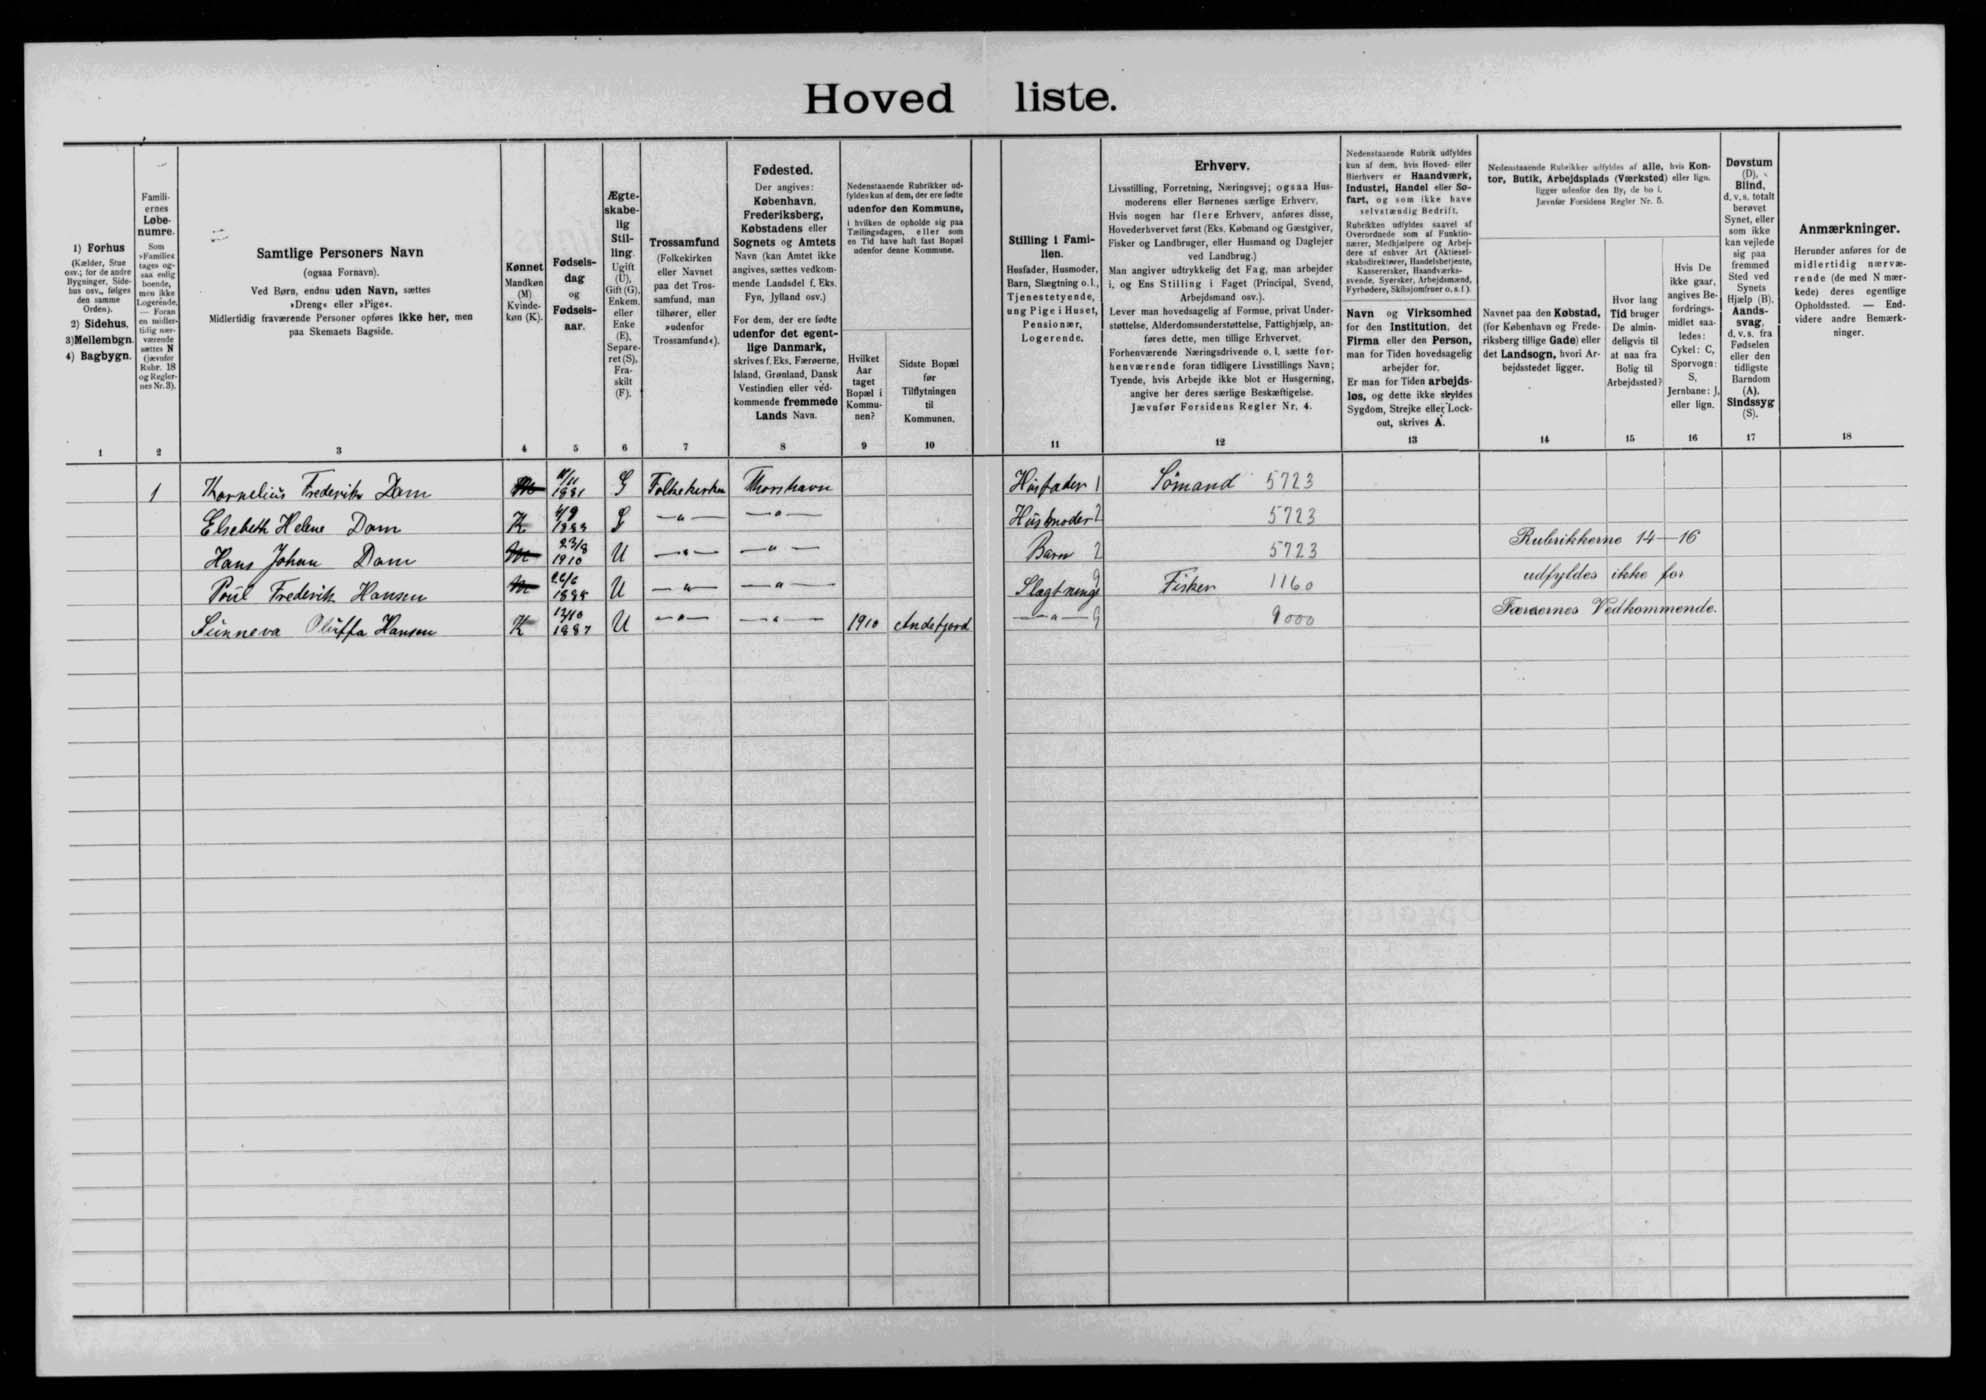 Hoved liste.
1) Forhus
(Kælder, Stue
osv.; for de andre
Bygninger, Side-
hus osv., følges
den samme
Orden).
2) Sidehus.
3) Mellembgn.
4) Bagbygn.
Famili-
ernes
Løbe-
numre.
Som
»Familie«
tages og-
saa enlig
boende,
men ikke
Logerende.
— Foran
en midler-
tidig nær-
værende
sættes N
(jævnfør
Rubr. 18
og Regler-
nes Nr. 3).
Samtlige Personers Navn
(ogsaa Fornavn).
Ved Børn, endnu uden Navn, sættes
»Dreng« eller »Pige«.
Midlertidig fraværende Personer opføres ikke her, men
paa Skemaets Bagside.
Kønnet
Mandkøn
(M)
Kvinde-
køn (K).
Fødsels-
dag
og
Fødsels-
aar.
Ægte-
skabe-
lig
Stil-
ling.
Ugift
(U),
Gift (G),
Enkem.
eller
Enke
(E),
Separe-
ret (S),
Fra-
skilt
(F).
Trossamfund
(Folkekirken
eller Navnet
paa det Tros-
samfund, man
tilhører, eller
»udenfor
Trossamfund«).
Fødested.
Der angives:
København,
Frederiksberg,
Købstadens eller
Sognets og Amtets
Navn (kan Amtet ikke
angives, sættes vedkom-
mende Landsdel f. Eks.
Fyn, Jylland osv.)
For dem, der ere fødte
udenfor det egent-
lige Danmark,
skrives f. Eks. Færøerne,
Island, Grønland, Dansk
Vestindien eller ved-
kommende fremmede
Lands Navn.
Nedenstaaende Rubrikker ud-
fyldes kun af dem, der ere fødte
udenfor den Kommune,
i hvilken de opholde sig paa
Tællingsdagen, eller som
en Tid have haft fast Bopæl
udenfor denne Kommune.
Hvilket
Aar
taget
Bopæl i
Kommu-
nen?
Sidste Bopæl
før
Tilflytningen
til
Kommunen.
Stilling i Fami-
lien.
Husfader, Husmoder,
Barn, Slægtning o. l.,
Tjenestetyende,
ung Pige i Huset,
Pensionær,
Logerende.
Erhverv.
Livsstilling, Forretning, Næringsvej; ogsaa Hus-
moderens eller Børnenes særlige Erhverv.
Hvis nogen har flere Erhverv, anføres disse,
Hovederhvervet først (Eks. Købmand og Gæstgiver,
Fisker og Landbruger, eller Husmand og Daglejer
ved Landbrug.)
Man angiver udtrykkelig det Fag, man arbejder
i, og Ens Stilling i Faget (Principal, Svend,
Arbejdsmand osv.).
Lever man hovedsagelig af Formue, privat Under-
støttelse, Alderdomsunderstøttelse, Fattighjælp, an-
føres dette, men tillige Erhvervet.
Forhenværende Næringsdrivende o. l. sætte for-
henværende foran tidligere Livsstillings Navn;
Tyende, hvis Arbejde ikke blot er Husgerning,
angive her deres særlige Beskæftigelse.
Jævnfør Forsidens Regler Nr. 4.
Nedenstaaende Rubrik udfyldes
kun af dem, hvis Hoved- eller
Bierhverv er Haandværk,
Industri, Handel eller Sø-
fart, og som ikke have
selvstændig Bedrift.
Rubrikken udfyldes saavel af
Overordnede som af Funktio-
nærer, Medhjælpere og Arbej-
dere af enhver Art (Aktiesel-
skabsdirektører, Handelsbetjente,
Kassererseker, Haandværks-
svende, Syersker, Arbejdsmænd,
Fyrbødere, Skibsjomfruer o. s. f.).
Navn og Virksomhed
for den Institution, det
Firma eller den Person,
man for Tiden hovedsagelig
arbejder for.
Er man for Tiden arbejds-
løs, og dette ikke skyldes
Sygdom, Strejke eller Lock-
out, skrives A.
Nedenstaaende Rubrikker udfyldes af alle, hvis Kon-
tor, Butik, Arbejdsplads (Værksted) eller lign.
ligger udenfor den By, de bo i.
Jævnfør Forsidens Regler Nr. 5.
Navnet paa den Købstad,
(for København og Frede-
riksberg tillige Gade) eller
det Landsogn, hvori Ar-
bejdsstedet ligger.
Hvor lang
Tid bruger
De almin-
deligvis til
at naa fra
Bolig til
Arbejdssted?
Hvis De
ikke gaar,
angives Be-
fordrings-
midlet saa-
ledes:
Cykel: C,
Sporvogn:
S,
Jernbane: J,
eller lign.
Døvstum
(D).
Blind,
d. v. s. totalt
berøvet
Synet, eller
som ikke
kan vejlede
sig paa
fremmed
Sted ved
Synets
Hjælp (B).
Aands-
svag,
d. v. s. fra
Fødselen
eller den
tidligste
Barndom
(A).
Sindssyg
(S).
Anmærkninger.
Herunder anføres for de
midlertidig nærvæ-
rende (de med N mær-
kede) deres egentlige
Opholdssted. — End-
videre andre Bemærk-
ninger.
1 2 3 4 5 6 7 8 9 10 11 12 13 14 15 16 17 18
1 Kornelius Frederik Dam M 11/11 1881 G Folkekirken Thorshavn Husfader 1 Sømand 5723
Elsebeth Helene Dam K 4/9 1888 G —„— —„— Husmoder 2 5723
Hans Johan Dam M 23/8 1910 U —„— —„— Barn 2 5723
Poul Frederik Hansen M 26/6 1888 U —„— —„— Slægtninge 9 Fisker 1160
Sunneva Oluffa Hansen K 12/10 1887 U —„— —„— 1910 Andefjord —„— 9 9000
Rubrikkerne 14—16
udfyldes ikke for
Færøernes Vedkommende.